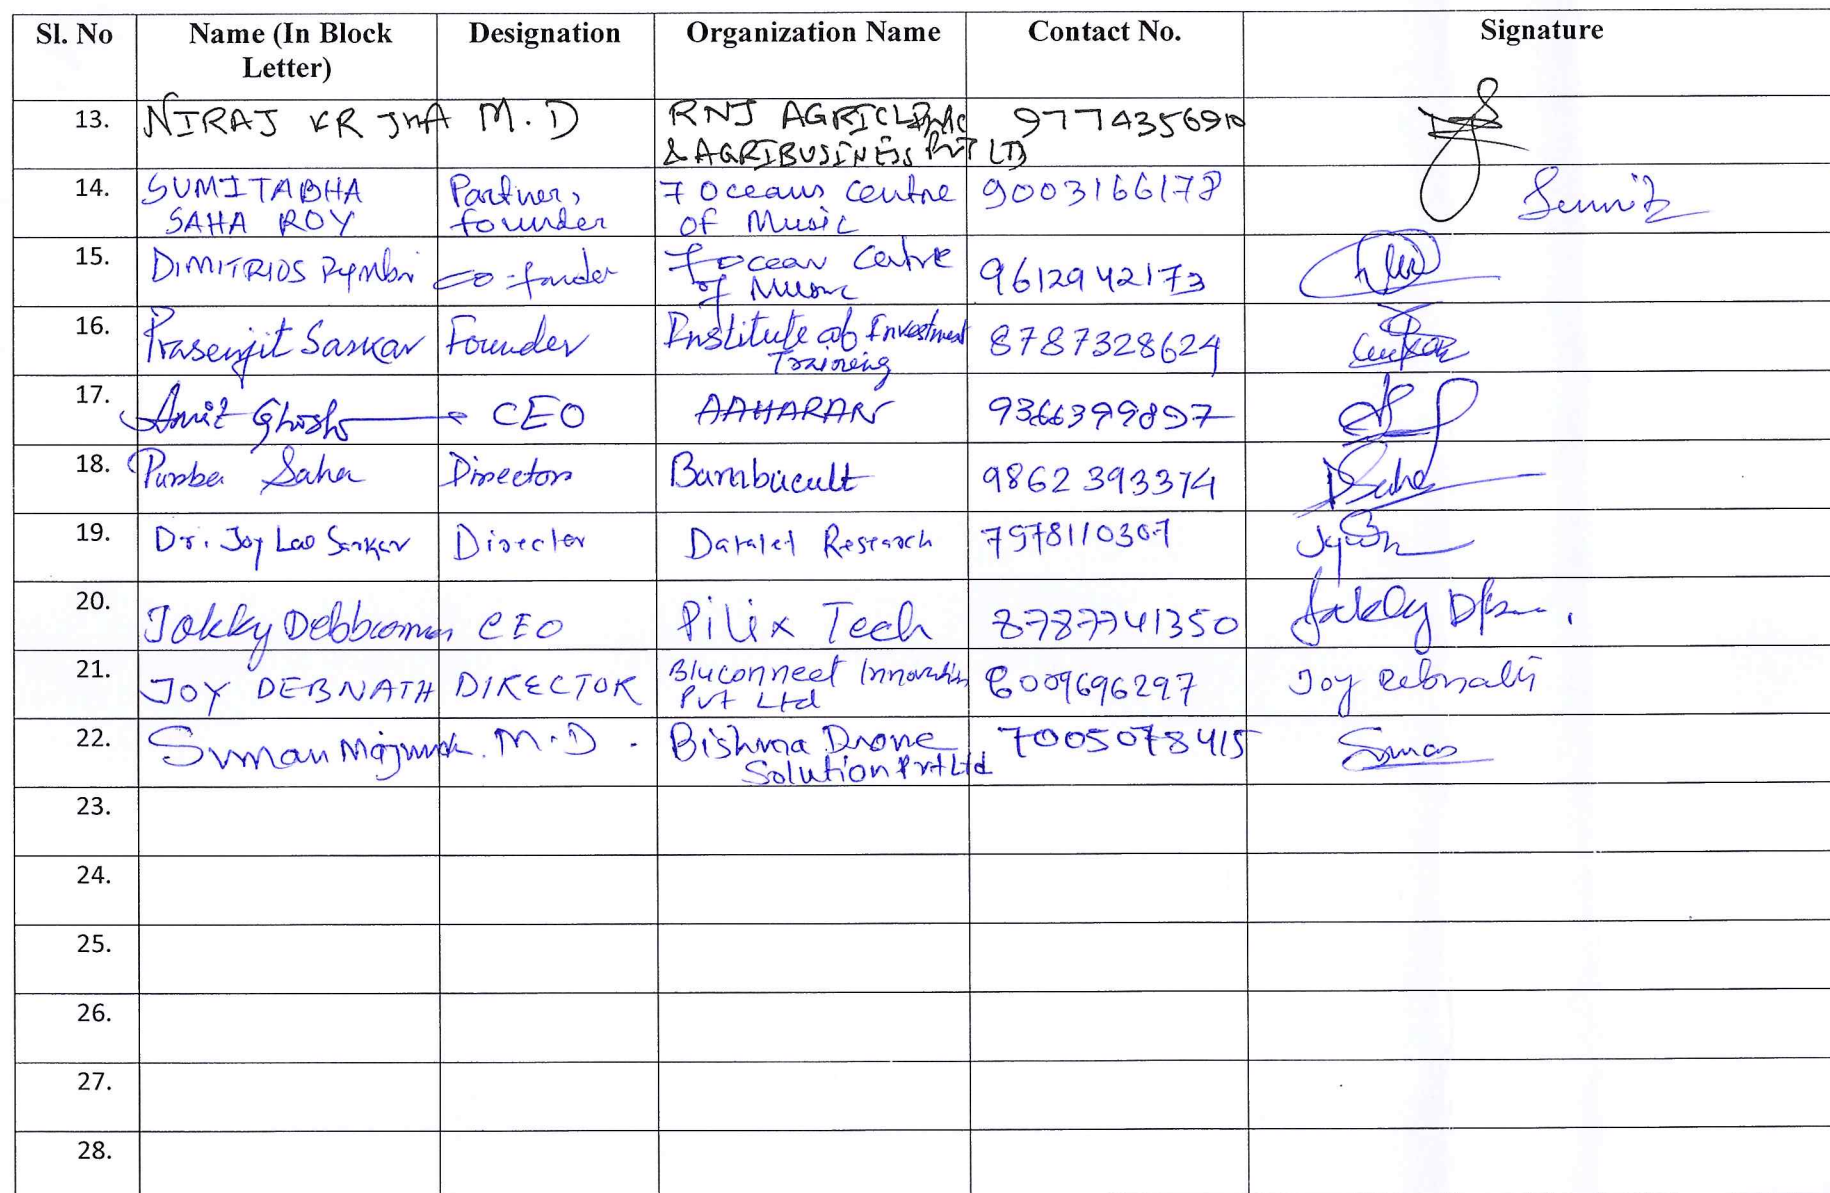 Sl. No Name (In Block Letter) Designation Organization Name Contact No. Signature
13. NIRAJ KR JHA M.D RNJ AGRICLINIC & AGRIBUSINESS PVT LTD 9774356910
14. SUMITABHA SAHA ROY Partner, founder 7 Oceans Centre of Music 9003166178 Sumit
15. DIMITRIOS Rymbai co-founder 7 ocean Centre of Music 9612942173
16. Prasenjit Sarkar Founder Institute of Investment Training 8787328624
17. Amit Ghosh CEO AAHARAN 9366399897
18. Purba Saha Director Bambucult 9862393374 PSaha
19. Dr. Joy Lao Sarkar Director Datalet Research 7978110307
20. Jakky Debbarma CEO Pilix Tech 8787741350
21. JOY DEBNATH DIRECTOR Bluconnect Innovation Pvt Ltd 6009696297 Joy Debnath
22. Suman Majumder M.D. Bishma Drone Solution Pvt Ltd 7005078415 Suman
23.
24.
25.
26.
27.
28.